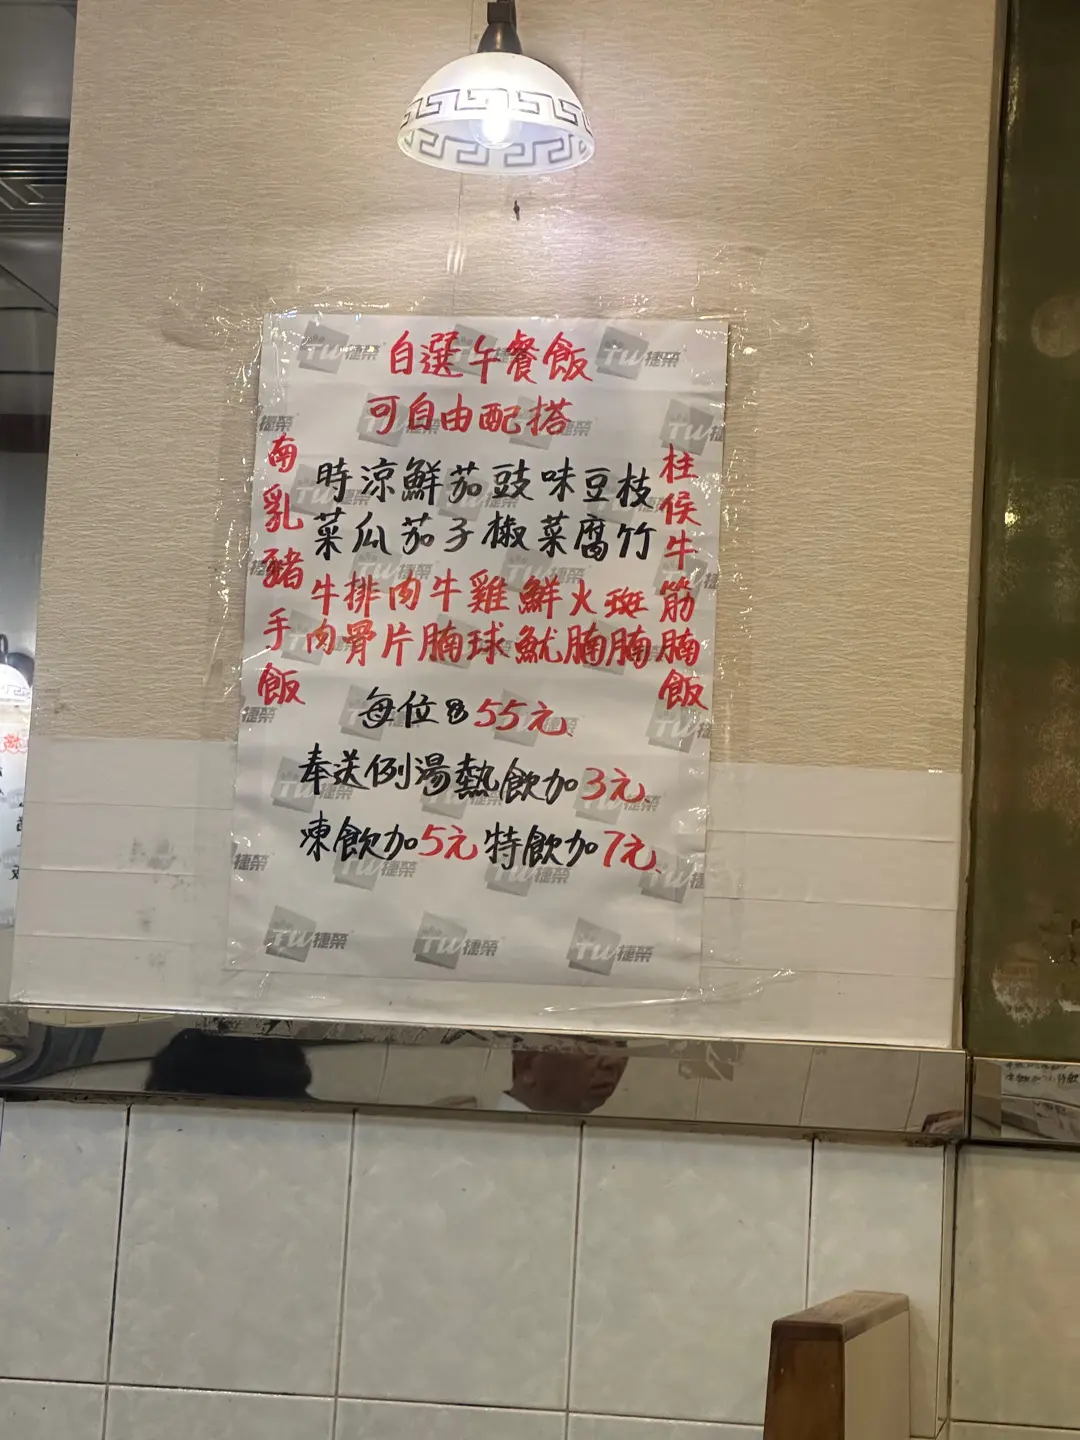 自選午餐飯
可自由配搭
南乳豬手飯
時涼鮮茄豉味豆枝
菜瓜茄子椒菜腐竹
牛排肉牛雞鮮火斑
肉骨片腩球魷腩腩
柱侯牛筋腩飯
每位
55元
奉送例湯熱飲加3元
凍飲加5元特飲加7元
TW捷榮